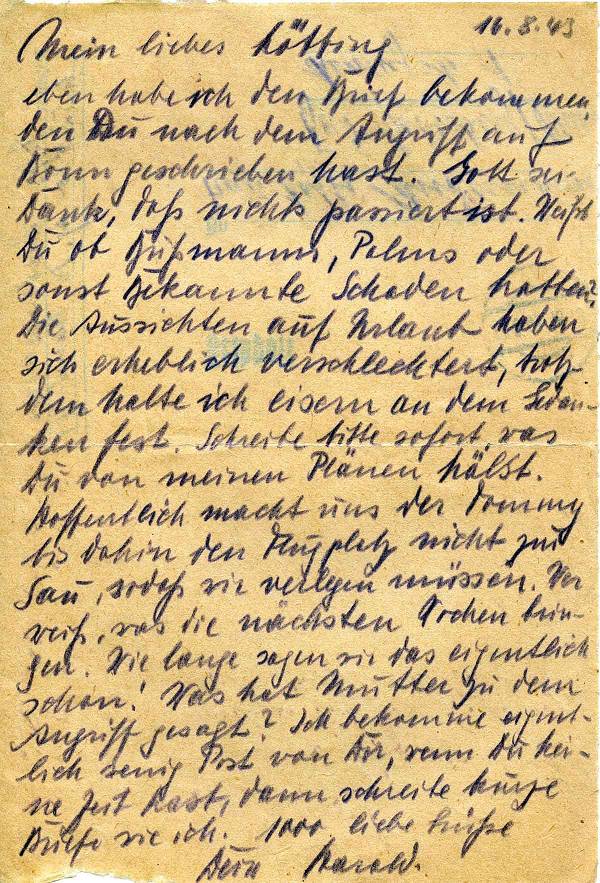 16.8.43
Mein liebes Kötting
eben habe ich den Brief bekommen,
den Du nach dem Angriff auf
Bonn geschrieben hast. Gott sei
Dank, daß nichts passiert ist. Weißt
Du ob Bußmanns, Palms oder
sonst Bekannte Schaden hatten?
Die Aussichten auf Urlaub haben
sich erheblich verschlechtert, trotz-
dem halte ich eisern an dem Gedan-
ken fest. Schreibe bitte sofort, was
Du von meinen Plänen hälst.
Hoffentlich macht uns der Tommy
bis dahin den Flugplatz nicht zur
Sau, sodaß wir verlegen müssen. Wer
weiß, was die nächsten Wochen brin-
gen. Wie lange sagen wir das eigentlich
schon! Was hat Mutter zu dem
Angriff gesagt? Ich bekomme eigent-
lich wenig Post von Dir, wenn Du kei-
ne Zeit hast, dann schreibe kurze
Briefe wie ich. 1000 liebe Grüße
Dein Harald.